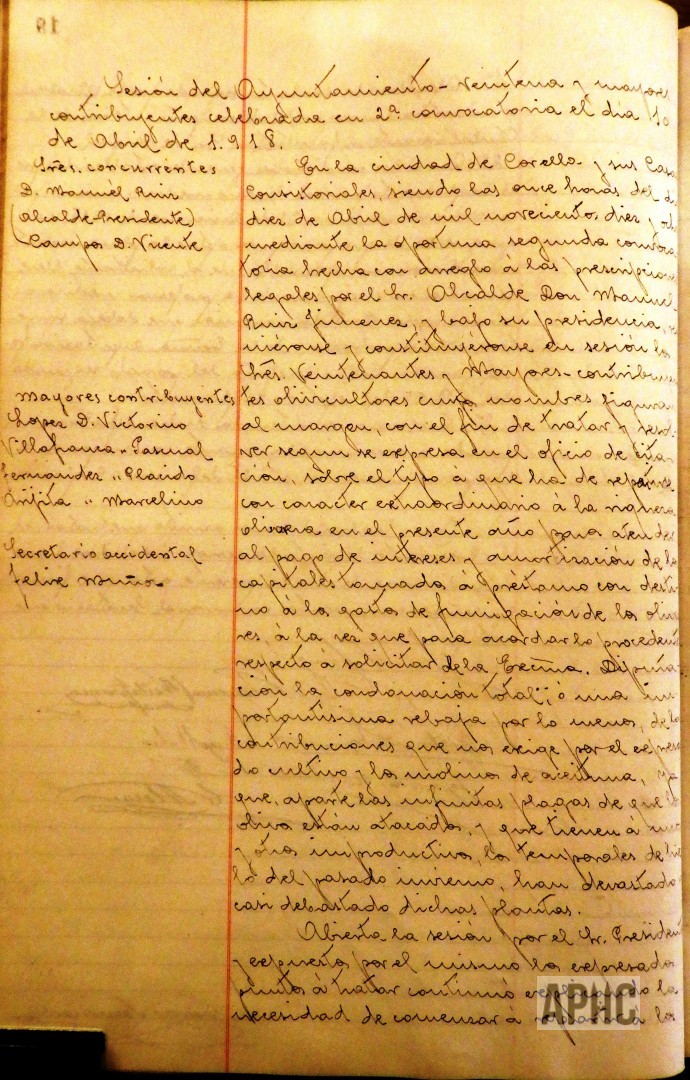 Sesión del Ayuntamiento-Veintena y mayores
contribuyentes celebrada en 2ª convocatoria el día 10
de Abril de 1.918.
Sres. concurrentes
D. Manuel Ruiz
(Alcalde-Presidente)
Campos D. Vicente
Mayores contribuyentes
Lopez D. Victorino
Villafranca " Pascual
Fernandez " Placido
Arifita " Marcelino
Secretario accidental
Felix Muño
En la ciudad de Corella y sus Casas
Consistoriales, siendo las once horas del
diez de Abril de mil novecientos diez y och
mediante la oportuna segunda convoca
toria hecha con arreglo á las prescripcion
legales por el Sr. Alcalde Don Manuel
Ruiz Jimenez, y bajo su presidencia, re
uniéronse y constituyéronse en sesión los
Sres. Veintenantes y Mayores-contribuyen
tes olivicultores cuyos nombres figuran
al margen, con el fin de tratar y resol
ver segun se expresa en el oficio de cita
ción, sobre el tipo á que ha de repartirse
con caracter extraordinario á la riqueza
olivarera en el presente año para atender
al pago de intereses y amortización de los
capitales tomados á préstamo con desti
no á los gastos de fumigación de los oliva
res, á la vez que para acordar lo procedente
respecto á solicitar de la Excma. Diputa
ción la condonación total, ó una im
portantisima rebaja por lo menos, de las
contribuciones que nos exige por el expresa
do cultivo y los molinos de aceituna, ya
que, aparte las infinitas plagas de que los
olivos están atacados, y que tienen á
y otros improductivos, los temporales de hie
lo del pasado invierno, han devastado
casi debastado dichas plantas.
Abierta la sesión por el Sr. President
y expuestos por el mismo los expresados
puntos á tratar continuó explicando la
necesidad de comenzar á los
19
APHC